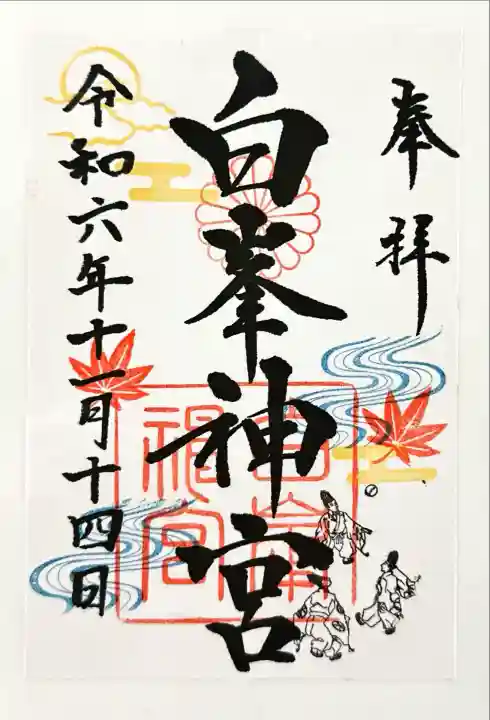 奉拝
白峯神宮
令和六年十一月十四日
白峯
神宮